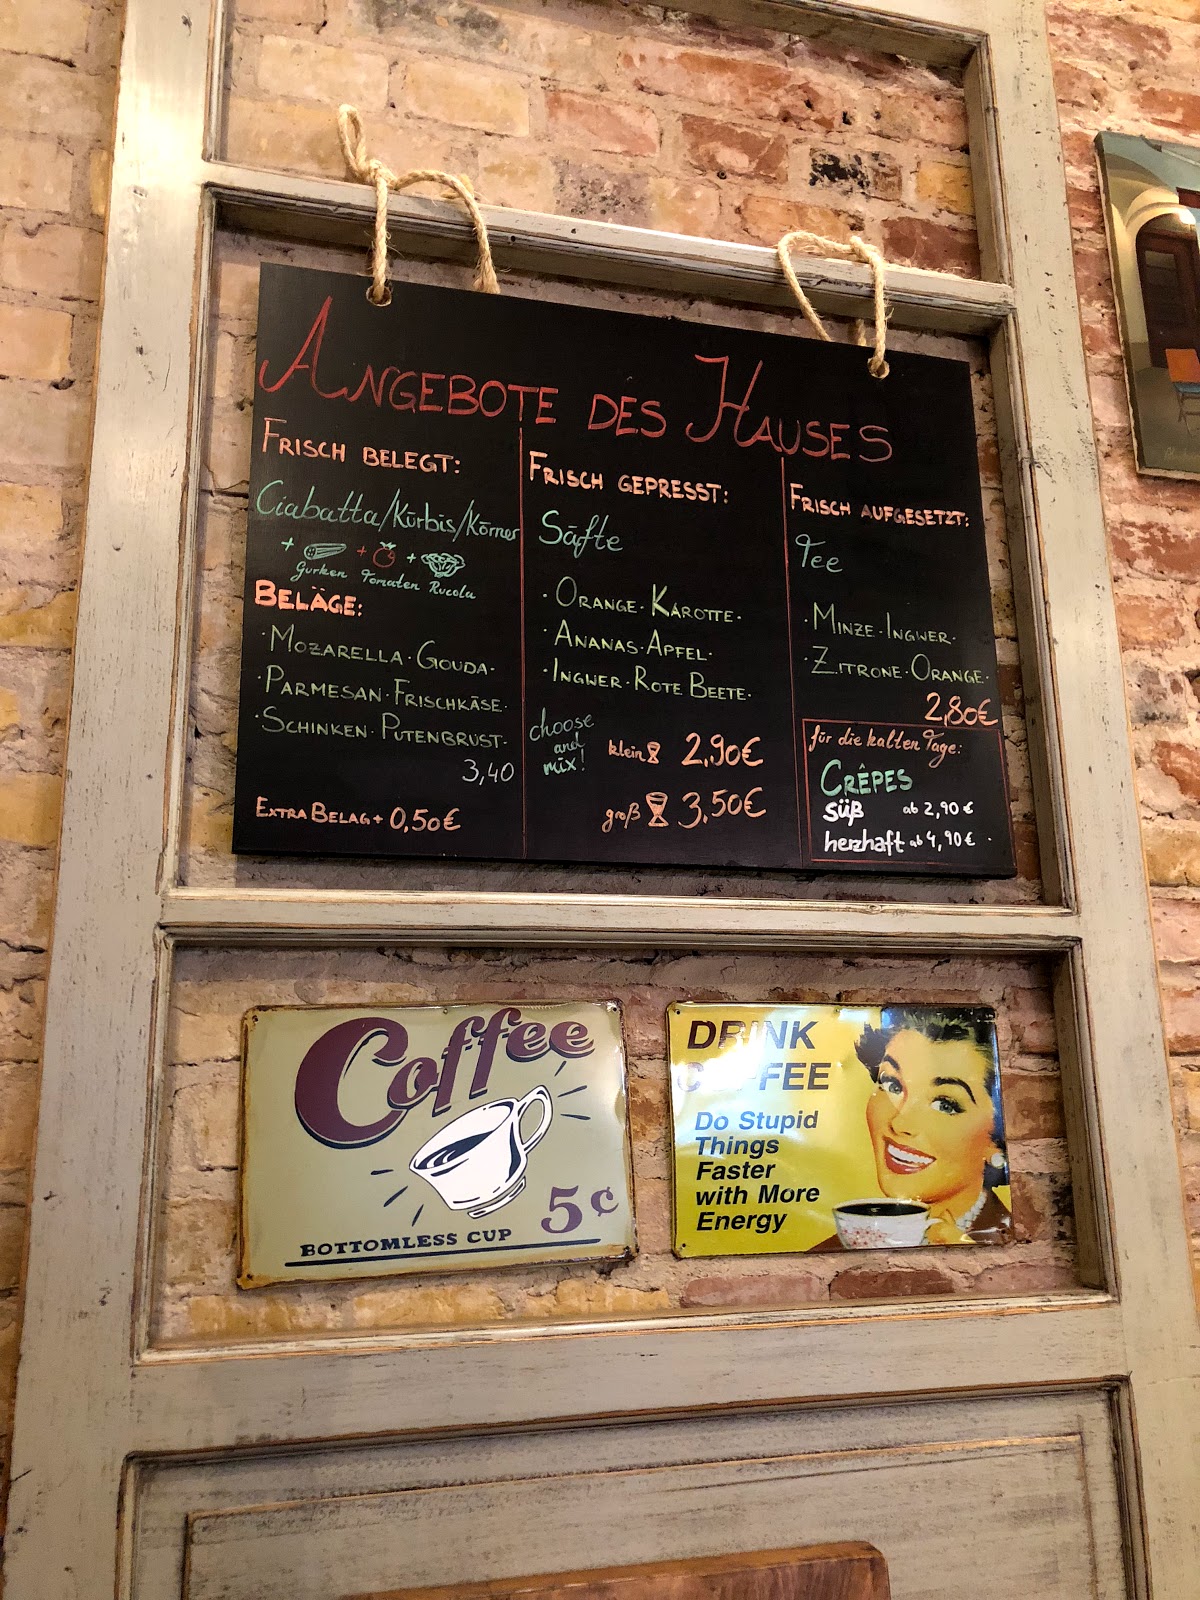 ANGEBOTE DES HAUSES
FRISCH BELEGT:
Ciabatta/Kürbis/Körner
+ + +
Gurken Tomaten Rucola
BELÄGE:
· MOZARELLA · GOUDA ·
· PARMESAN · FRISCHKÄSE ·
· SCHINKEN · PUTENBRUST ·
3,40
EXTRA BELAG + 0,50€
FRISCH GEPRESST:
Säfte
· ORANGE · KAROTTE ·
· ANANAS · APFEL ·
· INGWER · ROTE BEETE ·
choose
and
mix!
klein 2,90€
groß 3,50€
FRISCH AUFGESETZT:
Tee
· MINZE · INGWER ·
· ZITRONE · ORANGE ·
2,80€
für die kalten Tage:
CRÊPES
süß ab 2,90 €
herzhaft ab 4,90 €
Coffee
5¢
BOTTOMLESS CUP
DRINK
COFFEE
Do Stupid
Things
Faster
with More
Energy